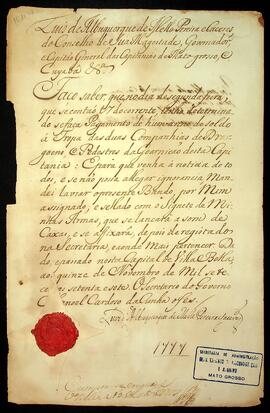 Luis de Albuquerque de Mello Pereira e Caceres
do Conselho de Sua Magestade, Governador,
e Capitão General da Capitania de Mato grosso, e
Cuyabá &.ª
Faço saber, que no dia de segunda feira,
que se contaõ 17 do corrente, tenho determina
do se faça Pagamento de hum anno de soldo
á Tropa das duas Companhias de Dra
goens, e Pedestres da Guarnição desta Capi
tania: E para que venha á noticia de to
dos, e se não possa allegar ignorancia, Man
dei lavrar o prezente Bando, por Mim
assignado, e sellado com o Signete de Mi
nhas Armas, que se lançará a som de
Caixas, e se affixará, depois de registado
na Secretaria, e onde mais pertencer. Da
do, e passado nesta Capital de Villa Bella
aos quinze de Novembro de Mil sete
centos setenta e sete O Secretario do Governo
Manoel Cardozo da Cunha o fes.
Luiz d'Albuquerque de Mello Pereira e Caceres
1777
SECRETARIA DE ADMINISTRAÇÃO
MATO GROSSO